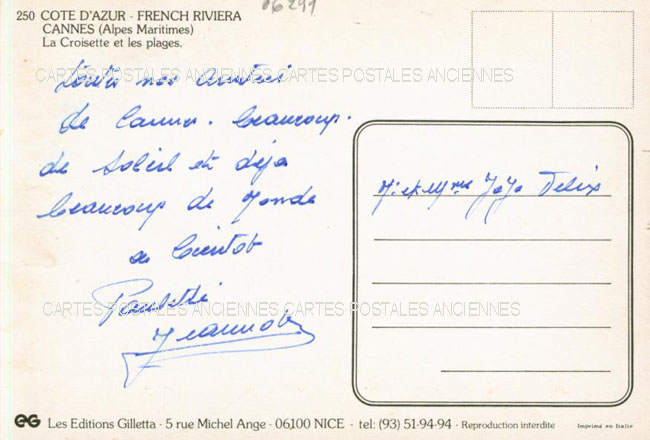 06291
250 COTE D'AZUR - FRENCH RIVIERA
CANNES (Alpes Maritimes)
La Croisette et les plages.
CARTES POSTALES ANCIENNES CARTES POSTALES ANCIENNES
toutes nos Amitiés
de Cannes. beaucoup.
de Soleil et déjà
beaucoup de monde
a bientot
Paulette
Jeannot
Mr et Mme JoJo Felix
CARTES POSTALES ANCIENNES CARTES POSTALES ANCIENNES
EG Les Editions Gilletta - 5 rue Michel Ange - 06100 NICE - tel: (93) 51-94-94 - Reproduction interdite
Imprimé en Italie